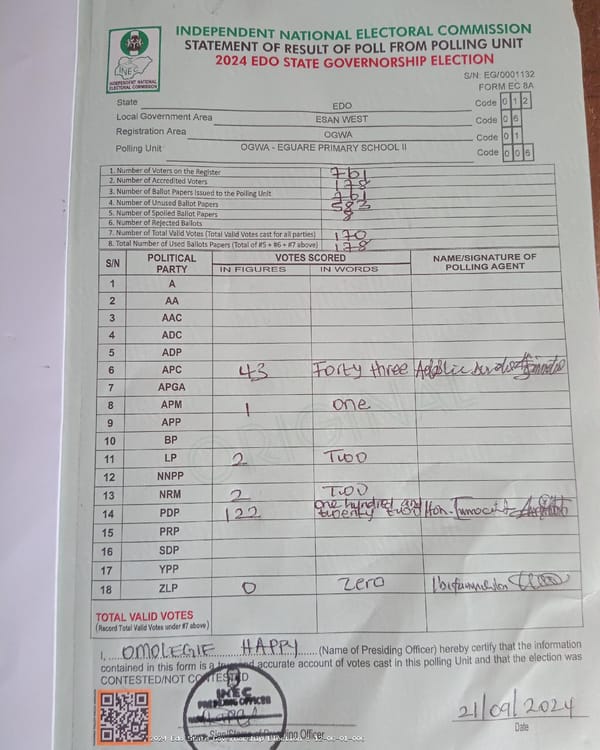 INDEPENDENT NATIONAL ELECTORAL COMMISSION
STATEMENT OF RESULT OF POLL FROM POLLING UNIT
2024 EDO STATE GOVERNORSHIP ELECTION
INEC
INDEPENDENT NATIONAL ELECTORAL COMMISSION
S/N: EG/0001132
FORM EC 8A
State EDO Code 0 1 2
Local Government Area ESAN WEST Code 0 6
Registration Area OGWA Code 0 1
Polling Unit OGWA - EGUARE PRIMARY SCHOOL II Code 0 0 6
1. Number of Voters on the Register 761
2. Number of Accredited Voters 178
3. Number of Ballot Papers Issued to the Polling Unit 761
4. Number of Unused Ballot Papers 583
5. Number of Spoiled Ballot Papers
6. Number of Rejected Ballots 8
7. Number of Total Valid Votes (Total Valid Votes cast for all parties) 170
8. Total Number of Used Ballots Papers (Total of #5 + #6 + #7 above) 178
S/N POLITICAL PARTY VOTES SCORED NAME/SIGNATURE OF POLLING AGENT
IN FIGURES IN WORDS
1 A
2 AA
3 AAC
4 ADC
5 ADP
6 APC 43 Forty three
7 APGA
8 APM 1 one
9 APP
10 BP
11 LP 2 Two
12 NNPP
13 NRM 2 Two
14 PDP 122 one hundred and twenty two Hon.
15 PRP
16 SDP
17 YPP
18 ZLP 0 Zero
TOTAL VALID VOTES
(Record Total Valid Votes under #7 above)
I, OMOLEGIE HAPPY (Name of Presiding Officer) hereby certify that the information
contained in this form is a true and accurate account of votes cast in this polling Unit and that the election was
CONTESTED/NOT CONTESTED
INEC
PRESIDING OFFICER
21/09/2024
Sign/Stamp of Presiding Officer
Date